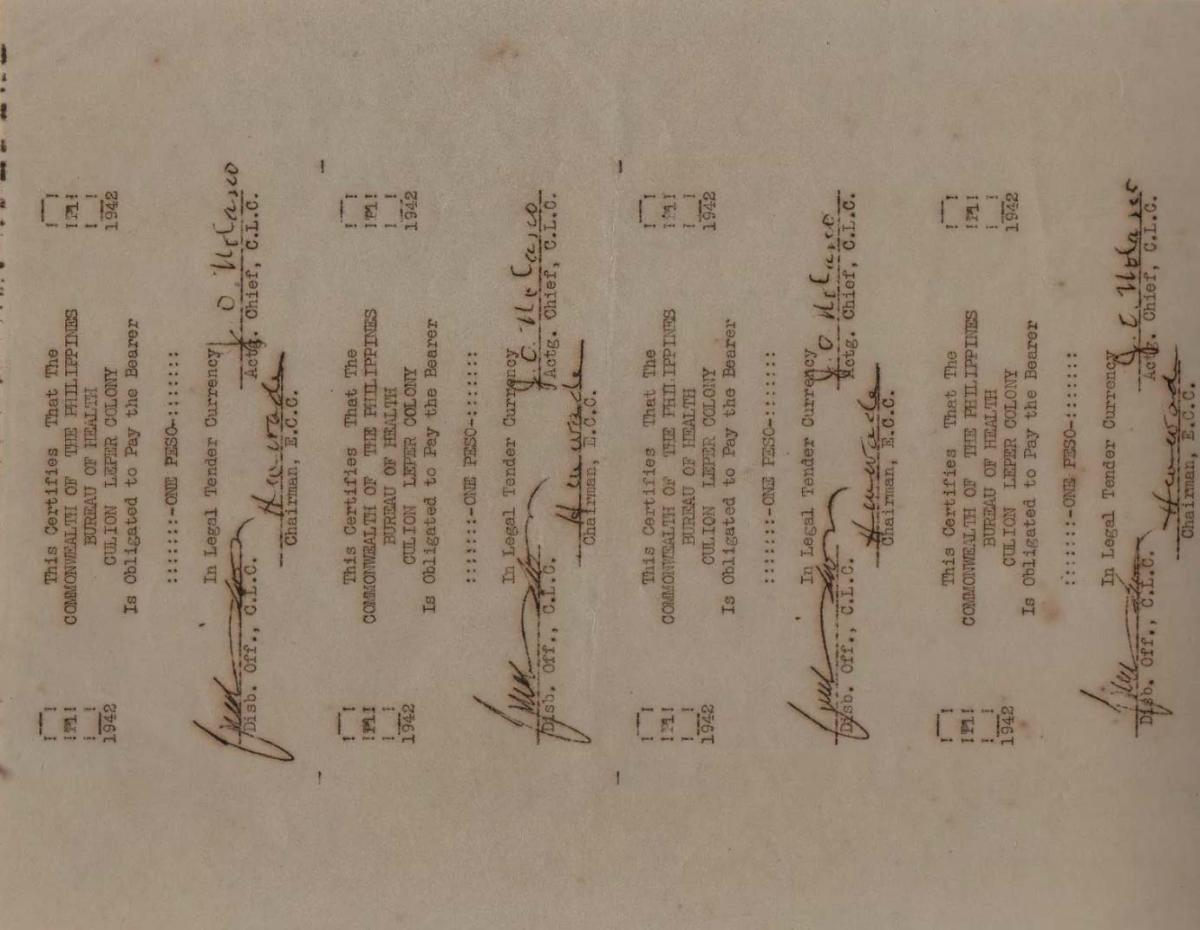 This Certifies That The
COMMONWEALTH OF THE PHILIPPINES
BUREAU OF HEALTH
CULION LEPER COLONY
Is Obligated to Pay the Bearer
₱1 ₱1
1942 1942
:::::::-ONE PESO-:::::::
In Legal Tender Currency
J. O. Nolasco
Disb. Off., C.L.C. Actg. Chief, C.L.C.
H. W. Wade
Chairman, E.C.C.
This Certifies That The
COMMONWEALTH OF THE PHILIPPINES
BUREAU OF HEALTH
CULION LEPER COLONY
Is Obligated to Pay the Bearer
₱1 ₱1
1942 1942
:::::::-ONE PESO-:::::::
In Legal Tender Currency
J. O. Nolasco
Disb. Off., C.L.C. Actg. Chief, C.L.C.
H. W. Wade
Chairman, E.C.C.
This Certifies That The
COMMONWEALTH OF THE PHILIPPINES
BUREAU OF HEALTH
CULION LEPER COLONY
Is Obligated to Pay the Bearer
₱1 ₱1
1942 1942
:::::::-ONE PESO-:::::::
In Legal Tender Currency
J. O. Nolasco
Disb. Off., C.L.C. Actg. Chief, C.L.C.
H. W. Wade
Chairman, E.C.C.
This Certifies That The
COMMONWEALTH OF THE PHILIPPINES
BUREAU OF HEALTH
CULION LEPER COLONY
Is Obligated to Pay the Bearer
₱1 ₱1
1942 1942
:::::::-ONE PESO-:::::::
In Legal Tender Currency
J. O. Nolasco
Disb. Off., C.L.C. Actg. Chief, C.L.C.
H. W. Wade
Chairman, E.C.C.